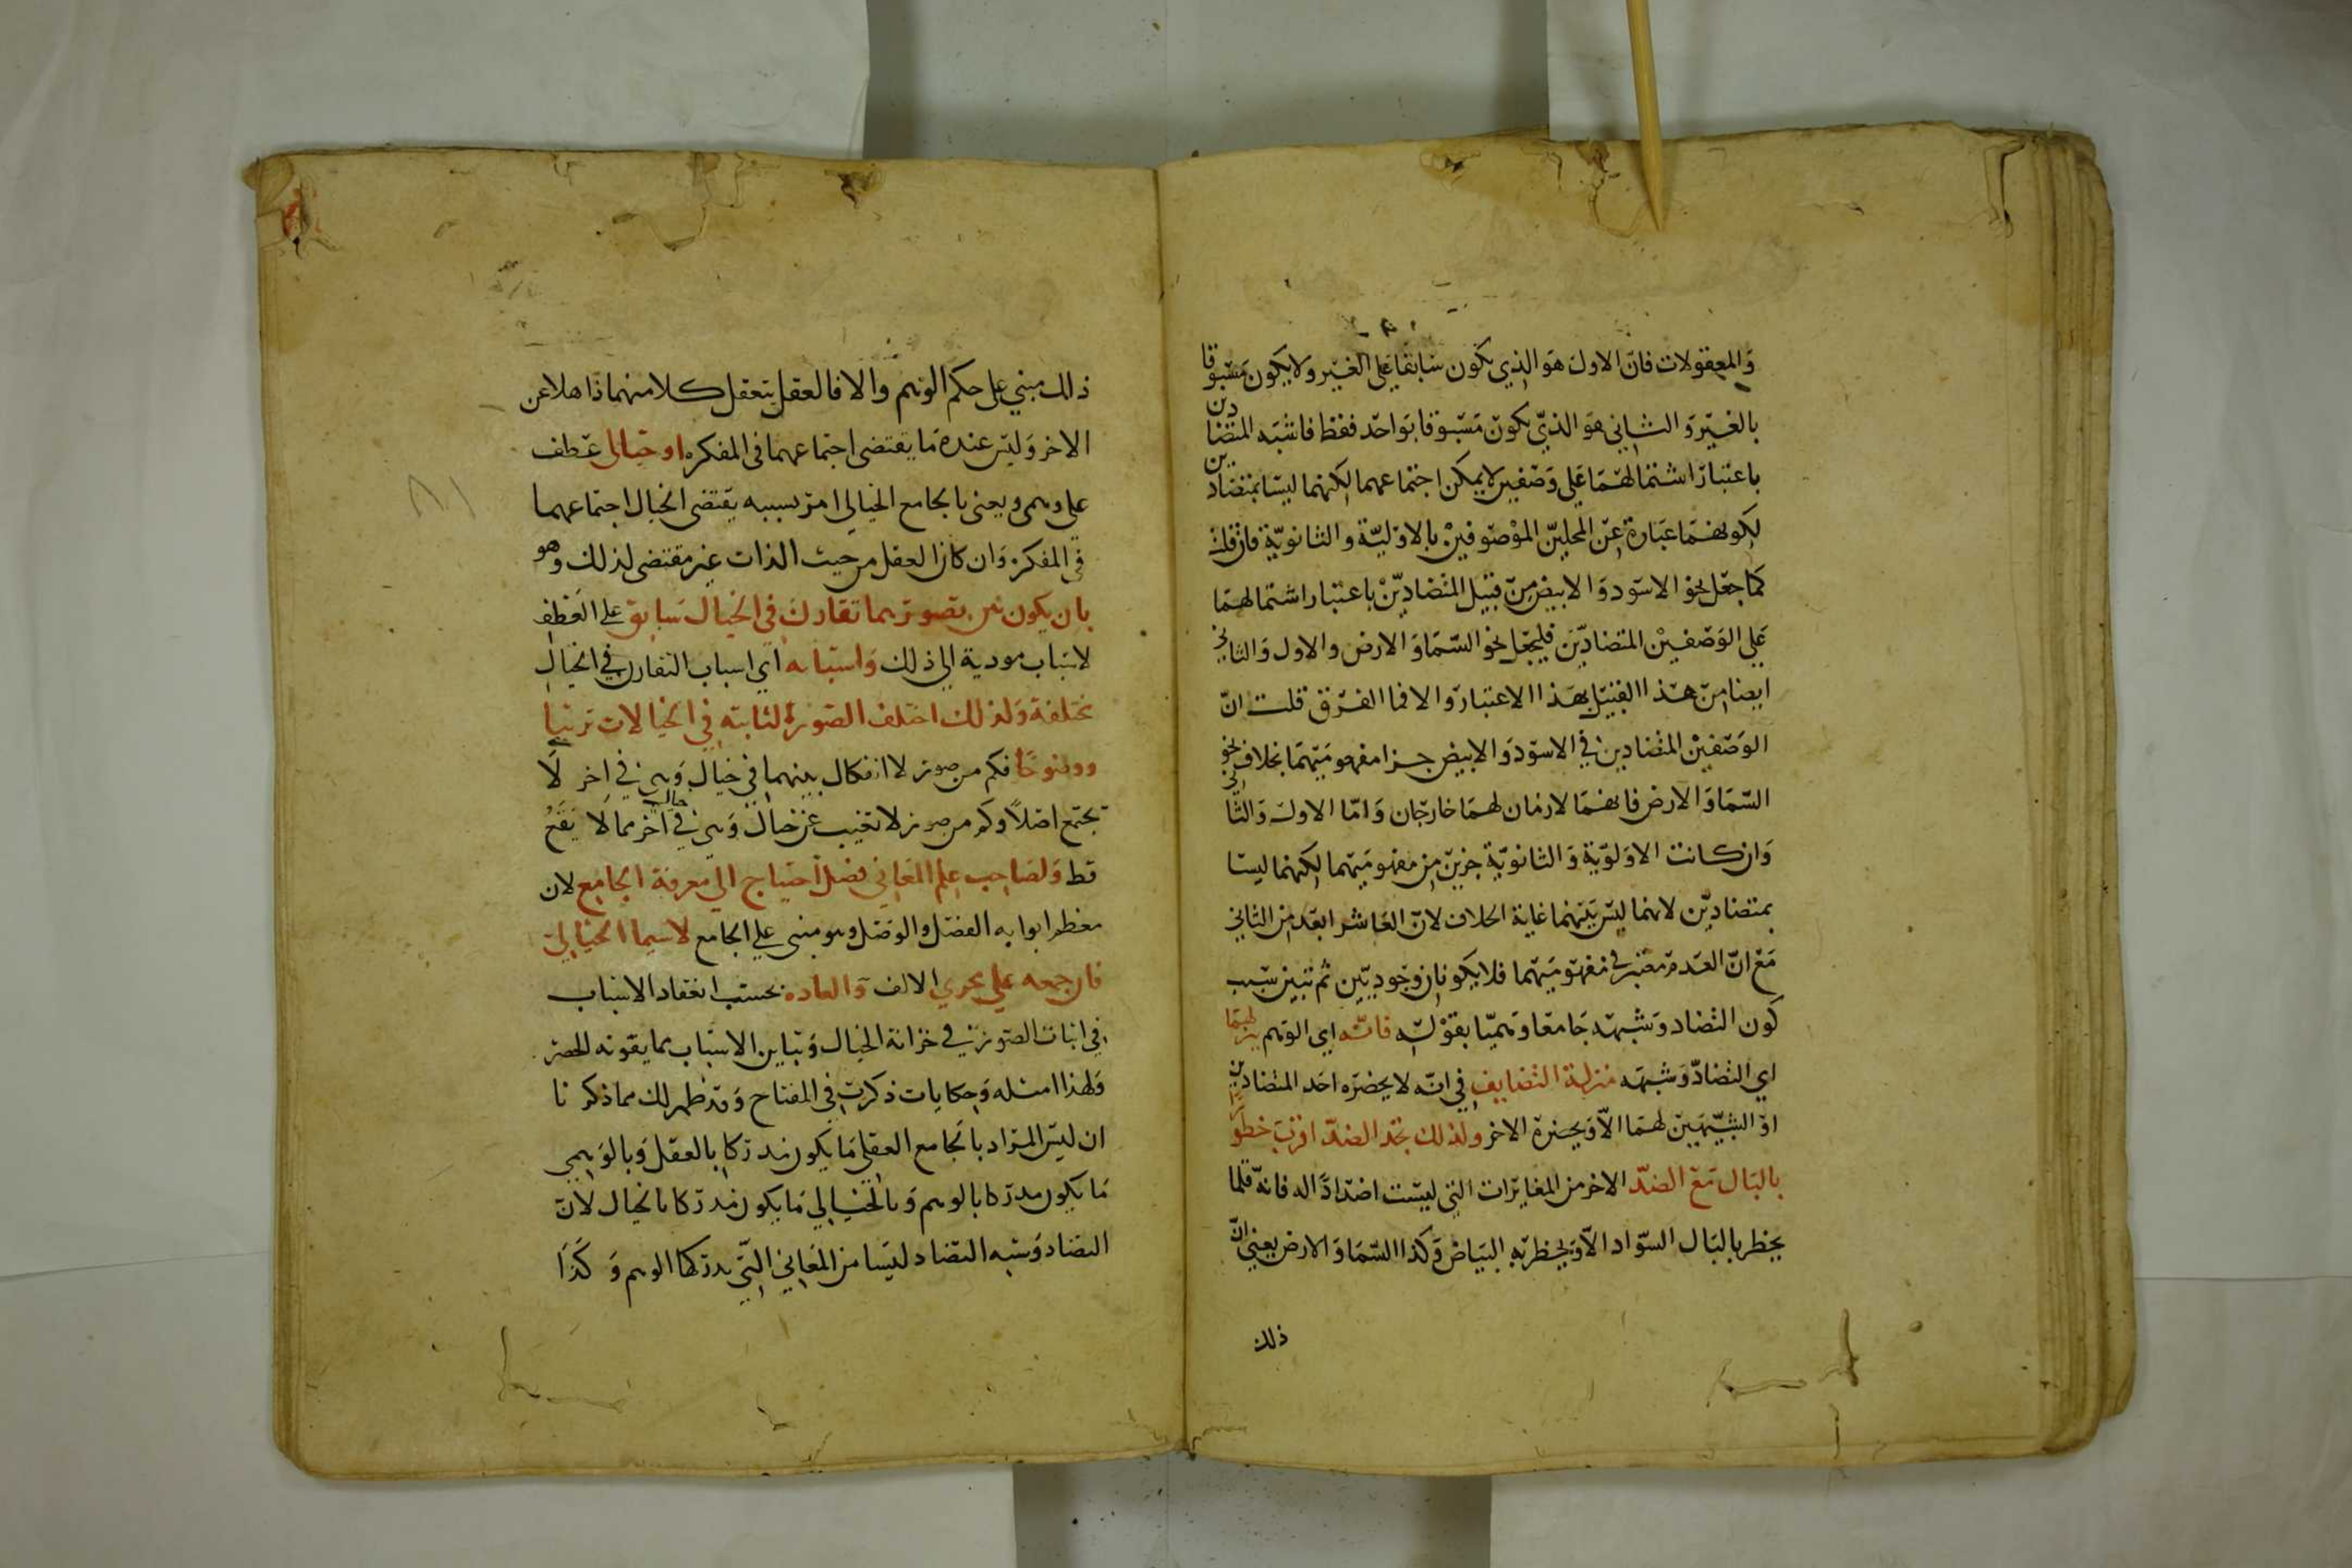 والمعقولات فان الاول هو الذي يكون سابقا على الغير ولا يكون مسبوقا
بالغير والثاني هو الذي يكون مسبوقا بواحد فقط فاشبه المتضادين
باعتبار اشتمالهما على وصفين لا يمكن اجتماعهما لكنهما ليسا بمتضادين
لكونهما عبارة عن المحلين الموصوفين بالاولية والثانوية فان قلت
كما جعل نحو الاسود والابيض من قبيل المتضادين باعتبار اشتمالهما
على الوصفين المتضادين فليجعل نحو السما والارض والاول والثاني
ايضا من هذا القبيل بهذا الاعتبار والا فما الفرق قلت ان
الوصفين المتضادين في الاسود والابيض جزا مفهوميهما بخلاف نحو
السما والارض فانهما لازمان لهما خارجان واما الاول والثاني
وان كانت الاولوية والثانوية جزين من مفهوميهما لكنهما ليسا
بمتضادين لانهما ليس بينهما غاية الخلاف لان العاشر ابعد من الثاني
مع ان العدم معتبر في مفهوميهما فلا يكونان وجوديين ثم تبين سبب
كون التضاد وشبهه جامعا وهميا بقوله فانه اي الوهم ينزلهما
اي التضاد وشبهه منزلة التضايف في انه لا يحضره احد المتضادين
او الشبيهين لهما الا ويحضره الاخر ولذلك تجد الضد اقرب خطورا
بالبال مع الضد الاخر من المغايرات التي ليست اضدادا له فانه قلما
يخطر بالبال السواد الا ويخطر به البياض وكذا السما والارض يعني ان
ذلك
ذلك مبني على حكم الوهم والا فالعقل يتعقل كلا منهما ذاهلا عن
الاخر وليس عنده ما يقتضى اجتماعهما في المفكره او خيالى عطف
على وهمى ويعنى بالجامع الخيالي امر بسببه يقتضى الخيال اجتماعهما
في المفكرة وان كان العقل من حيث الذات غير مقتضى لذلك وهو
بان يكون بين تصوريهما تقارن في الخيال سابق على العطف
لاسباب مودية الي ذلك واسبابه اي اسباب التقارن في الخيال
مختلفة ولذلك اختلف الصور الثابته في الخيالات ترتبا
ووضوحا فكم من صور لا انفكاك بينهما في خيال وهي في اخر لا
تجتمع اصلا وكم من صور لا تغيب عن خيال وهي في خيال آخر مما لا يقع
قط ولصاحب علم المعاني فضل احتياج الي معرفة الجامع لان
معظم ابوابه الفصل والوصل وهو مبنى على الجامع لاسيما الخيالي
فان جمعه على مجري الالف والعاده بحسب انعقاد الاسباب
في اثبات الصور في خزانة الخيال وتباين الاسباب مما يفوته الحصر
ولهذا امثله وحكايات ذكرت في المفتاح وقد ظهر لك مما ذكرنا
ان ليس المراد بالجامع العقلي ما يكون مدركا بالعقل وبالوهمي
ما يكون مدركا بالوهم وبالخيالي ما يكون مدركا بالخيال لان
التضاد وشبه التضاد ليسا من المعاني التي يدركها الوهم وكذا